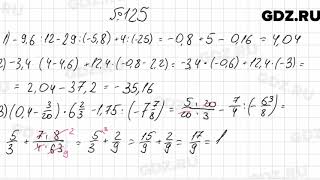 GDZ.RU
№125
1) -9,6 : 12 - 29 : (-5,8) + 4 : (-25) = -0,8 + 5 - 0,16 = 4,04
2) -3,4 · (4 - 4,6) + 12,4 · (-0,8 - 2,2) = -3,4 · (-0,6) + 12,4 · (-3) =
= 2,04 - 37,2 = -35,16
3) (0,4 - 3/20) · 6 2/3 - 1,75 : (-7 7/8) = 5 · 20/20 · 3 - 7/4 : (-63/8) =
5/3 + 7 · 8/4 · 63 = 5/3 + 2/9 = 15/9 + 2/9 = 17/9 = 1
GDZ.RU